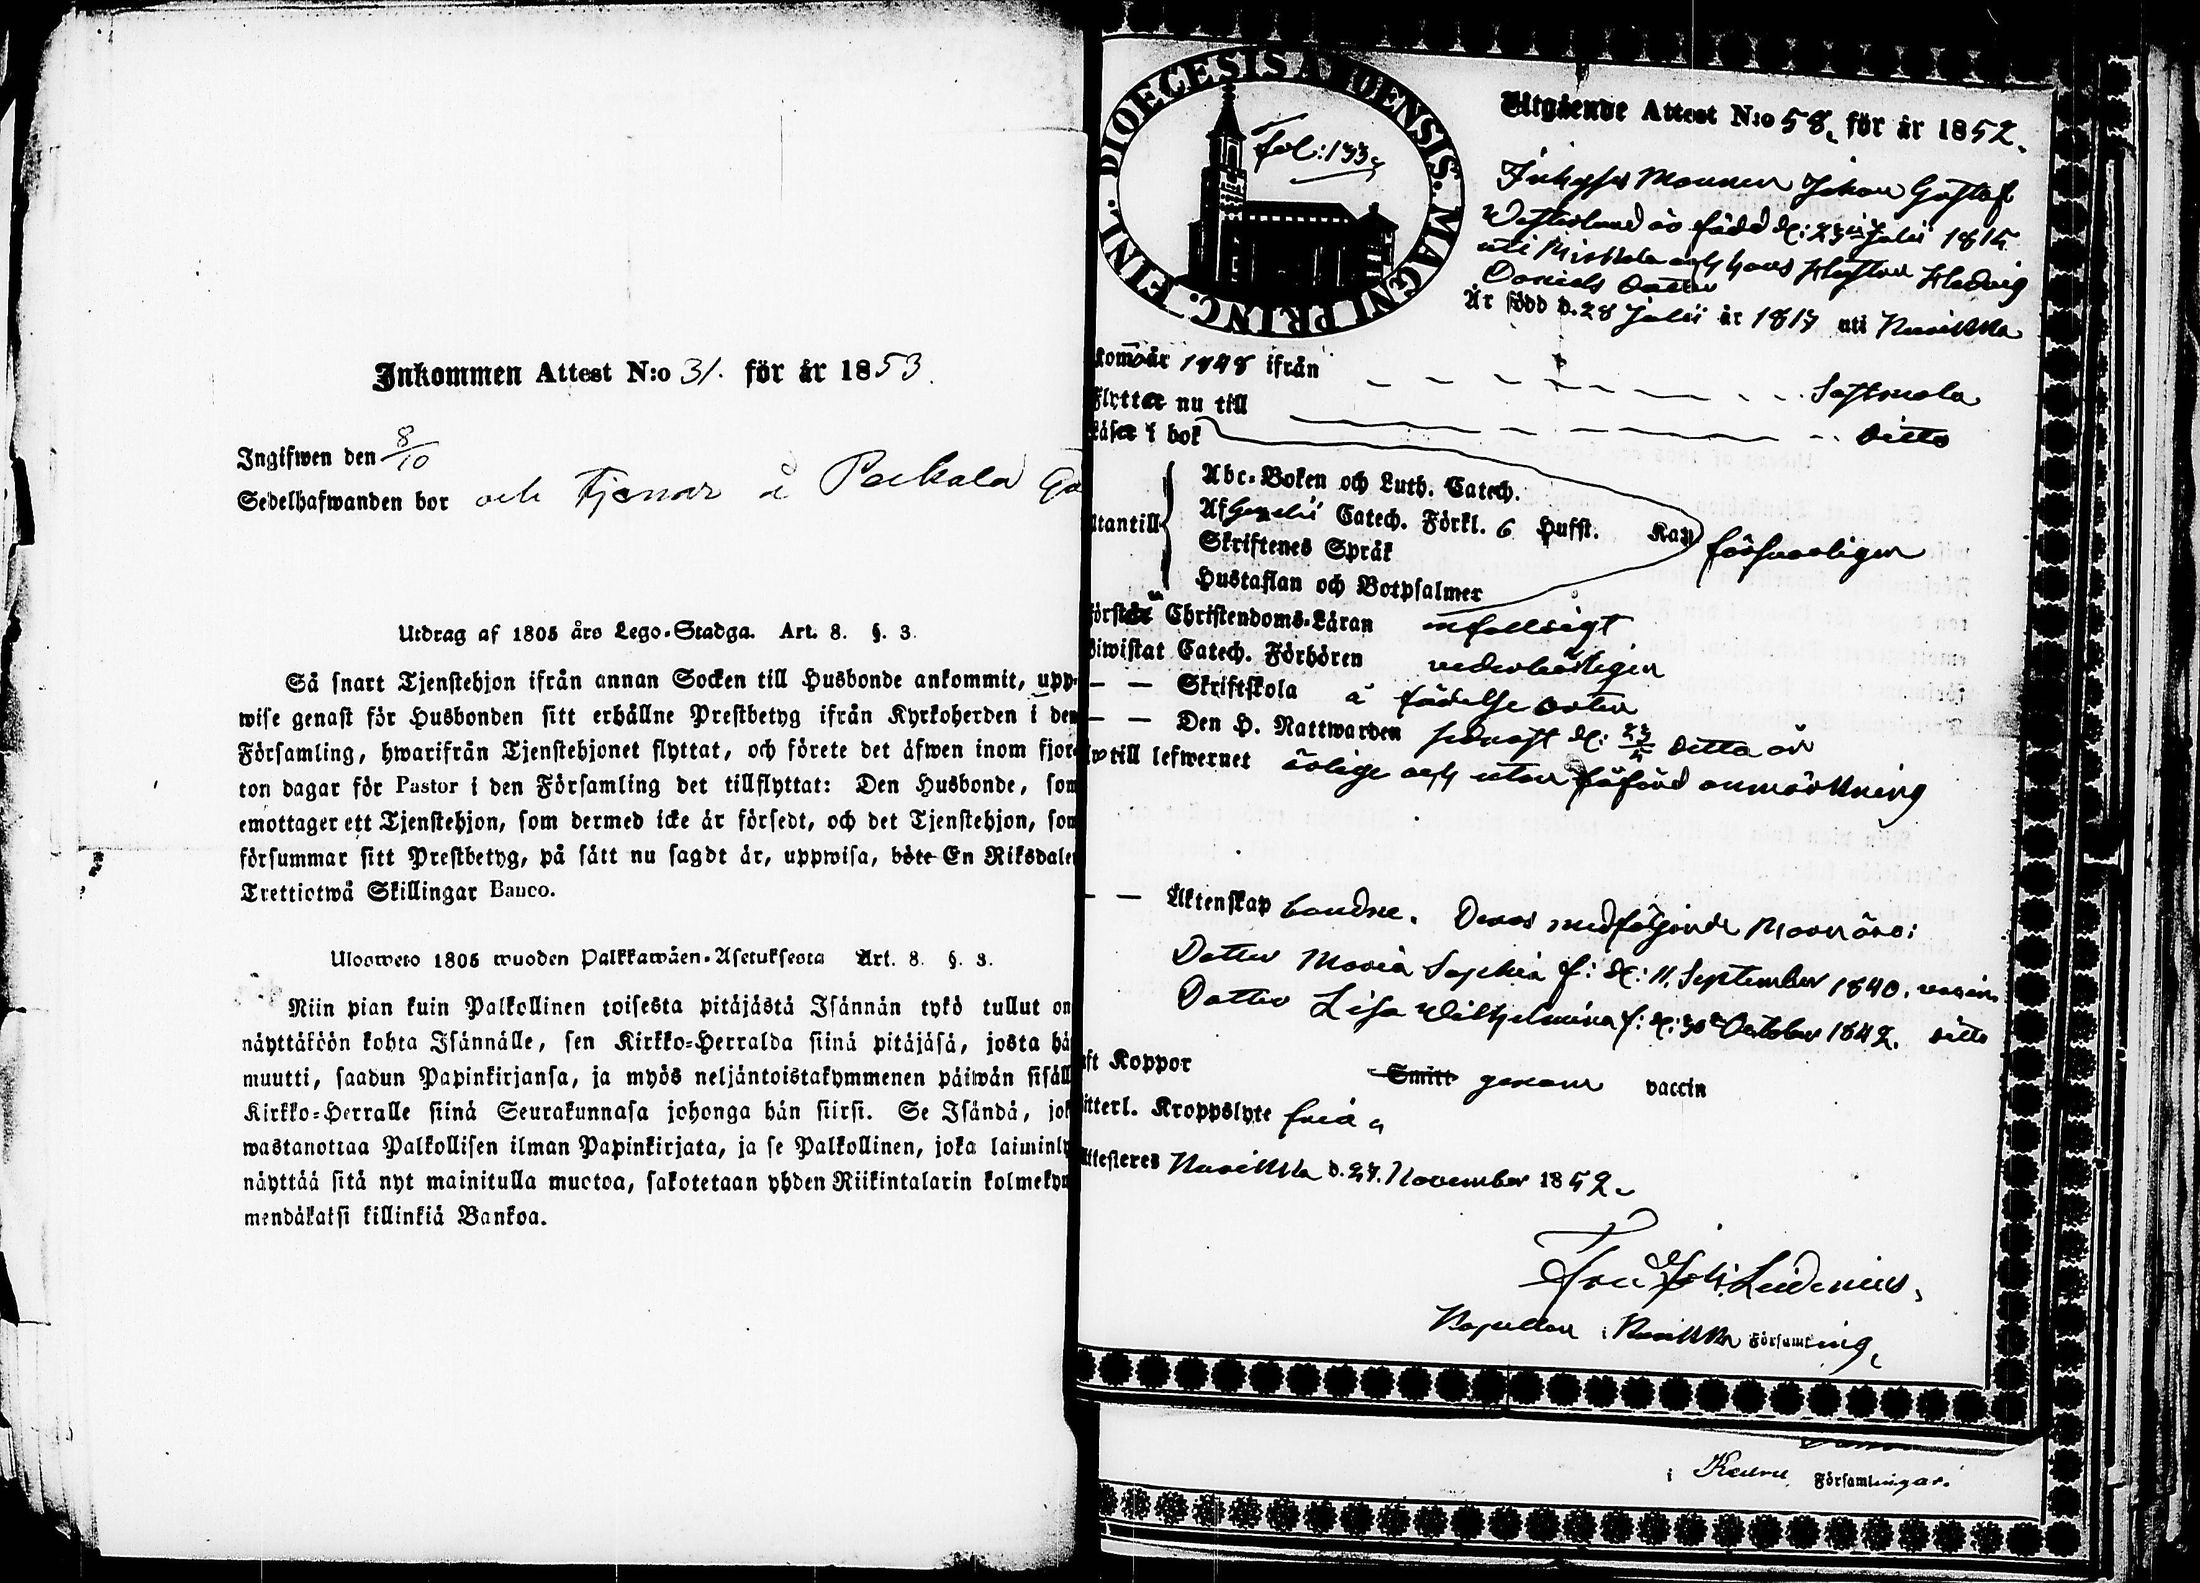 Inkommen Attest N:o 31. för år 1853.
Ingifwen den 8/10
Sedelhafwanden bor och tjenar å Packala
Utdrag af 1805 års Lego-Stadga. Art. 8. §. 3.
Så snart Tjenstehjon ifrån annan Socken till Husbonde ankommit, upp-
wise genast för Husbonden sitt erhållne Prestbetyg ifrån Kyrkoherden i den
Församling, hwarifrån Tjenstehjonet flyttat, och förete det äfwen inom fjor-
ton dagar för Pastor i den Församling det tillflyttat: Den Husbonde, som
emottager ett Tjenstehjon, som dermed icke är försedt, och det Tjenstehjon, som
försummar sitt Prestbetyg, på sätt nu sagdt är, uppwisa, böte En Riksdaler
Trettiotwå Skillingar Banco.
Ulosweto 1805 wuoden Palkkawäen-Asetuksesta Art. 8. §. 3.
Niin pian kuin Palkollinen toisesta pitäjästä Isännän tykö tullut on
näyttäköön kohta Isännälle, sen Kirkko-Herralda siinä pitäjäsä, josta hä
muutti, saadun Papinkirjansa, ja myös neljäntoistakymmenen päiwän sisäll
Kirkko-Herralle siinä Seurakunnasa johonga hän siirsi. Se Isändä, jok
wastanottaa Palkollisen ilman Papinkirjata, ja se Palkollinen, joka laiminly
näyttää sitä nyt mainitulla muotoa, sakotetaan yhden Riikintalarin kolmeky
mendäkaksi killinkiä Bankoa.
FINL. DIOECESIS ABOENSIS. MAGNI PRINC.
Fol: 133
Utgående Attest N:o 58 för år 1852.
Inhyses Mannen Johan Gustaf
Westerlund är född d: 23 Julii 1815
uti och hans Hustru Hedwig
Daniels Dotter
Är född d. 28 Julii år 1817 uti
kom år 1848 ifrån Sastmola
Flytta nu till ditto
läser i bok
Abc-Boken och Luth. Catech.
utantill Af Gezelii Catech. Förkl. 6 Hufst. Kap försvarligen
Skriftenes Språk
Hustaflan och Botpsalmer
Förstår Christendoms-Läran enfalldigt
Biwistat Catech. Förhören wederbörligen
— — Skriftskola å födelse orten
— — Den H. Nattwarden sednast d: 23/5 detta år
till lefwernet ärlige och utan anmärkning
— — Äktenskap bundne. Deras medföljande barn äro:
Dotter Maria Sophia f: d: 11 September 1840. vaccin
Dotter Lisa Wilhelmina f: d: 30 October 1842. ditto
haft Koppor Smitt genom vaccin
Kroppslyte fria
Attesteres d. 27. November 1852.
Capellan i Församling
i Församlingar.